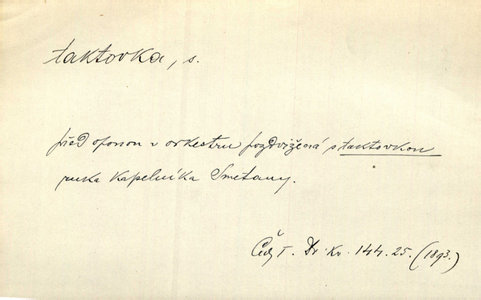 taktovka, s.
před oponou v orkestru pozdvižená s taktovkou
ruka kapelníka Smetany.
Čech T. Dr. Kr. 144. 25. (1893.)